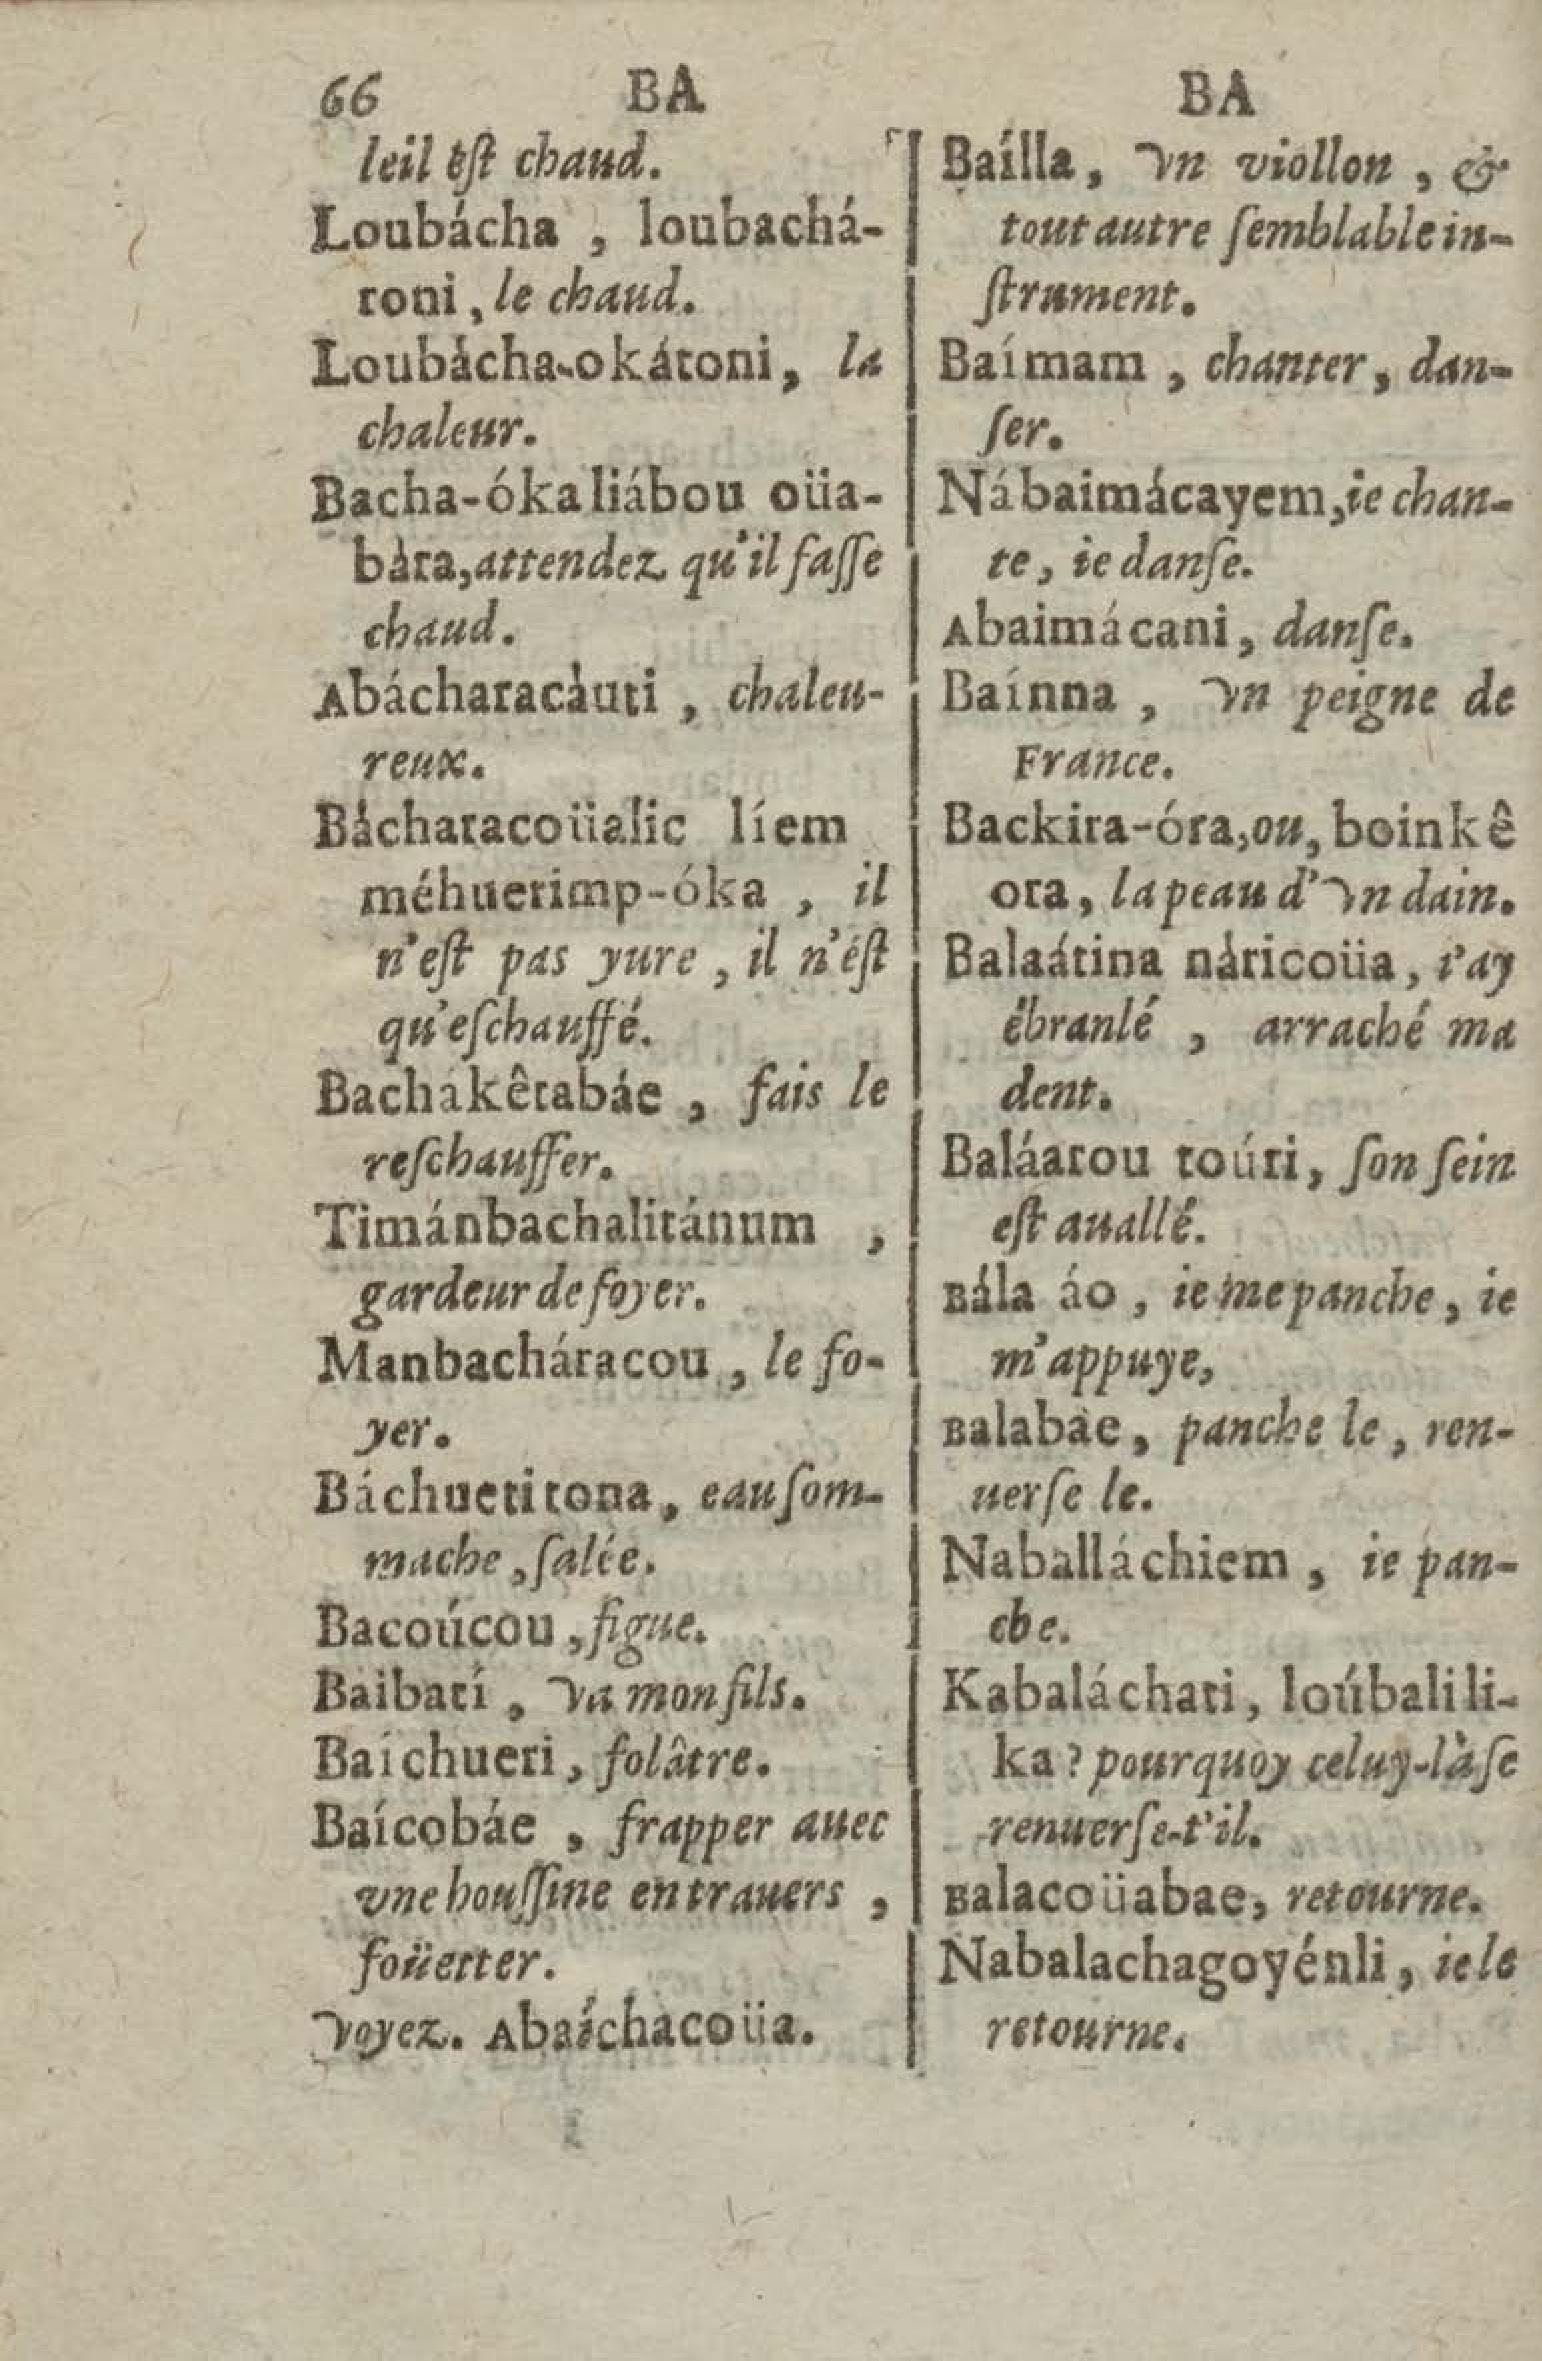 66 BA BA
leil ést chaud.
Loubácha , loubachá-
roni, le chaud.
Loubácha-okátoni, la
chaleur.
Bacha-óka liábou oüa-
bára, attendez qu'il faſſe
chaud.
Abácharacàuti , chaleu-
reux.
Bácharacoüalic líem
méhuerimp-óka , il
n'eſt pas yure , il n'éſt
qu'eſchauffé.
Bachákêtabáe , fais le
reſchauffer.
Timánbachalitánum ,
gardeur de foyer.
Manbacháracou , le fo-
yer.
Báchueti tona, eau ſom-
mache, ſalée.
Bacoúcou, figue.
Baibatí , va mon fils.
Baíchueri, folâtre.
Baícobáe , frapper auec
vne houſſine en trauers ,
foüetter.
voyez. Abaíchacoüa.
Baílla, vn viollon , &
tout autre ſemblable in-
ſtrument.
Baímam , chanter, dan-
ſer.
Nábaimácayem, ie chan-
te, ie danſe.
Abaimácani, danſe.
Baínna , vn peigne de
France.
Backira-óra, ou, boinkê
ora, la peau d'vn dain.
Balaátina náricoüa, i'ay
ébranlé , arraché ma
dent.
Baláarou toúri, ſon ſein
eſt auallé.
Bála áo , ie me panche, ie
m'appuye,
Balabáe, panche le, ren-
uerſe le.
Naballáchiem , ie pan-
che.
Kabaláchati, loúbalili-
ka? pourquóy celuy-là ſe
renuerſe-t'il.
Balacoüabae, retourne.
Nabalachagoyénli, ie le
retourne.